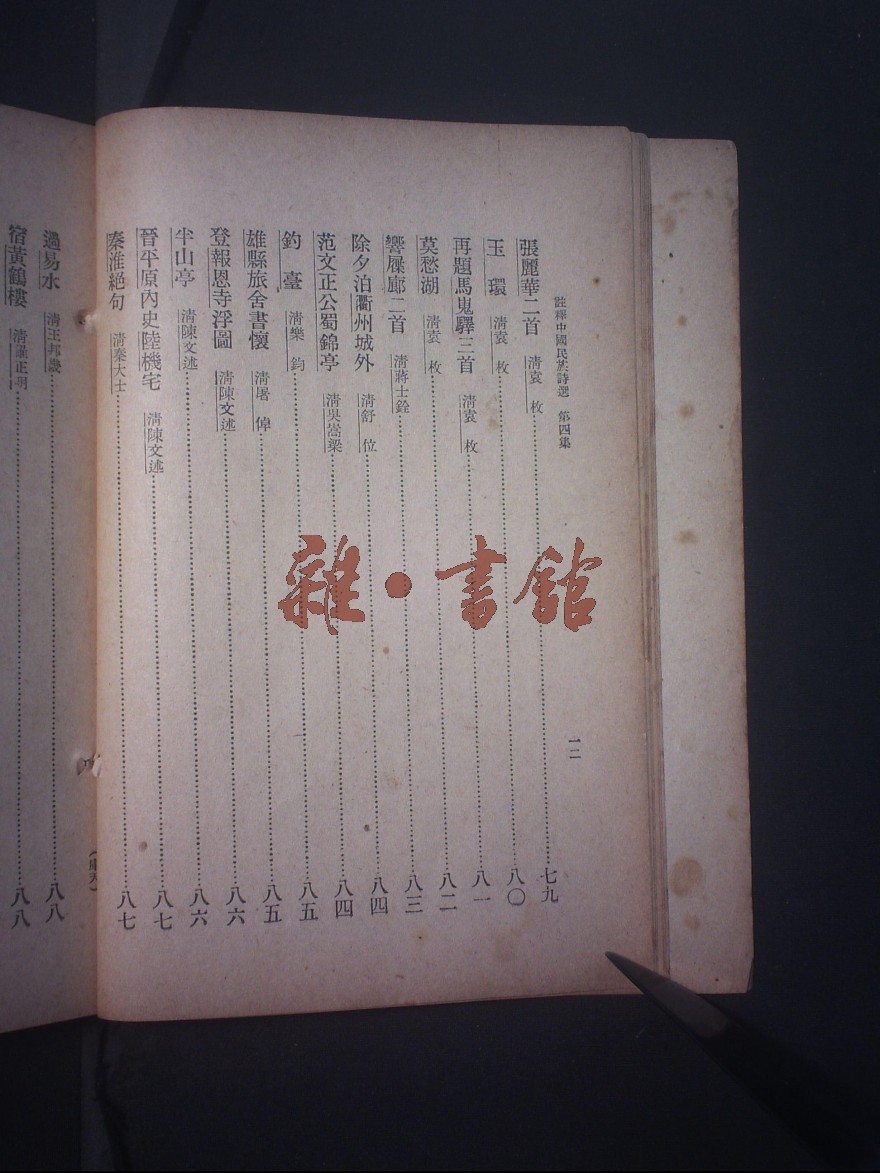 註釋中國民族詩選　第四集
一二
張麗華二首　清袁　枚……七九
玉　環　清袁　枚……八〇
再題馬嵬驛三首　清袁　枚……八一
莫愁湖　清袁　枚……八二
響屧廊二首　清蔣士銓……八三
除夕泊衢州城外　清舒　位……八四
范文正公蜀錦亭　清吳嵩梁……八四
釣　臺　清樂　鈞……八五
雄縣旅舍書懷　清屠　倬……八五
登報恩寺浮圖　清陳文述……八六
半山亭　清陳文述……八六
晉平原內史陸機宅　清陳文述……八七
秦淮絕句　清秦大士……八七
過易水　清王邦畿……八八
宿黃鶴樓　正明……八八
雜·書館